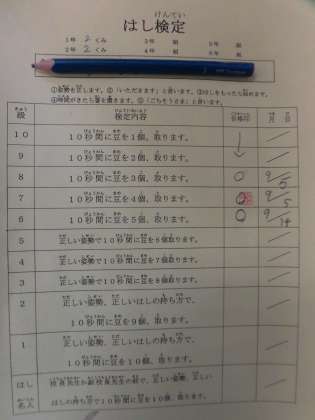 はし検定
1年 2 くみ 3年 組 5年 組
2年 2 くみ 4年 組 6年 組
①姿勢を正します。②「いただきます」と言います。③はしをもったら始めます。
④時間がきたら箸を置きます。⑤「ごちそうさま」と言います。
級 検定内容 合格印 月 日
10 10秒間に豆を1個、取ります。
9 10秒間に豆を2個、取ります。
8 10秒間に豆を3個、取ります。 ○ 9/5
7 10秒間に豆を4個、取ります。 ○ 9/5
6 10秒間に豆を5個、取ります。 ○ 9/14
5 正しい姿勢で10秒間に豆を6個取ります。
4 正しい姿勢で10秒間に豆を7個取ります。
3 正しい姿勢で10秒間に豆を8個取ります。
2 正しい姿勢、正しいはしの持ち方で、
10秒間に豆を9個、取ります。
1 正しい姿勢、正しいはしの持ち方で、
10秒間に豆を10個、取ります。
はし名人 校長先生か副校長先生の前で、正しい姿勢、正しい
はしの持ち方で10秒間に豆を10個、取ります。